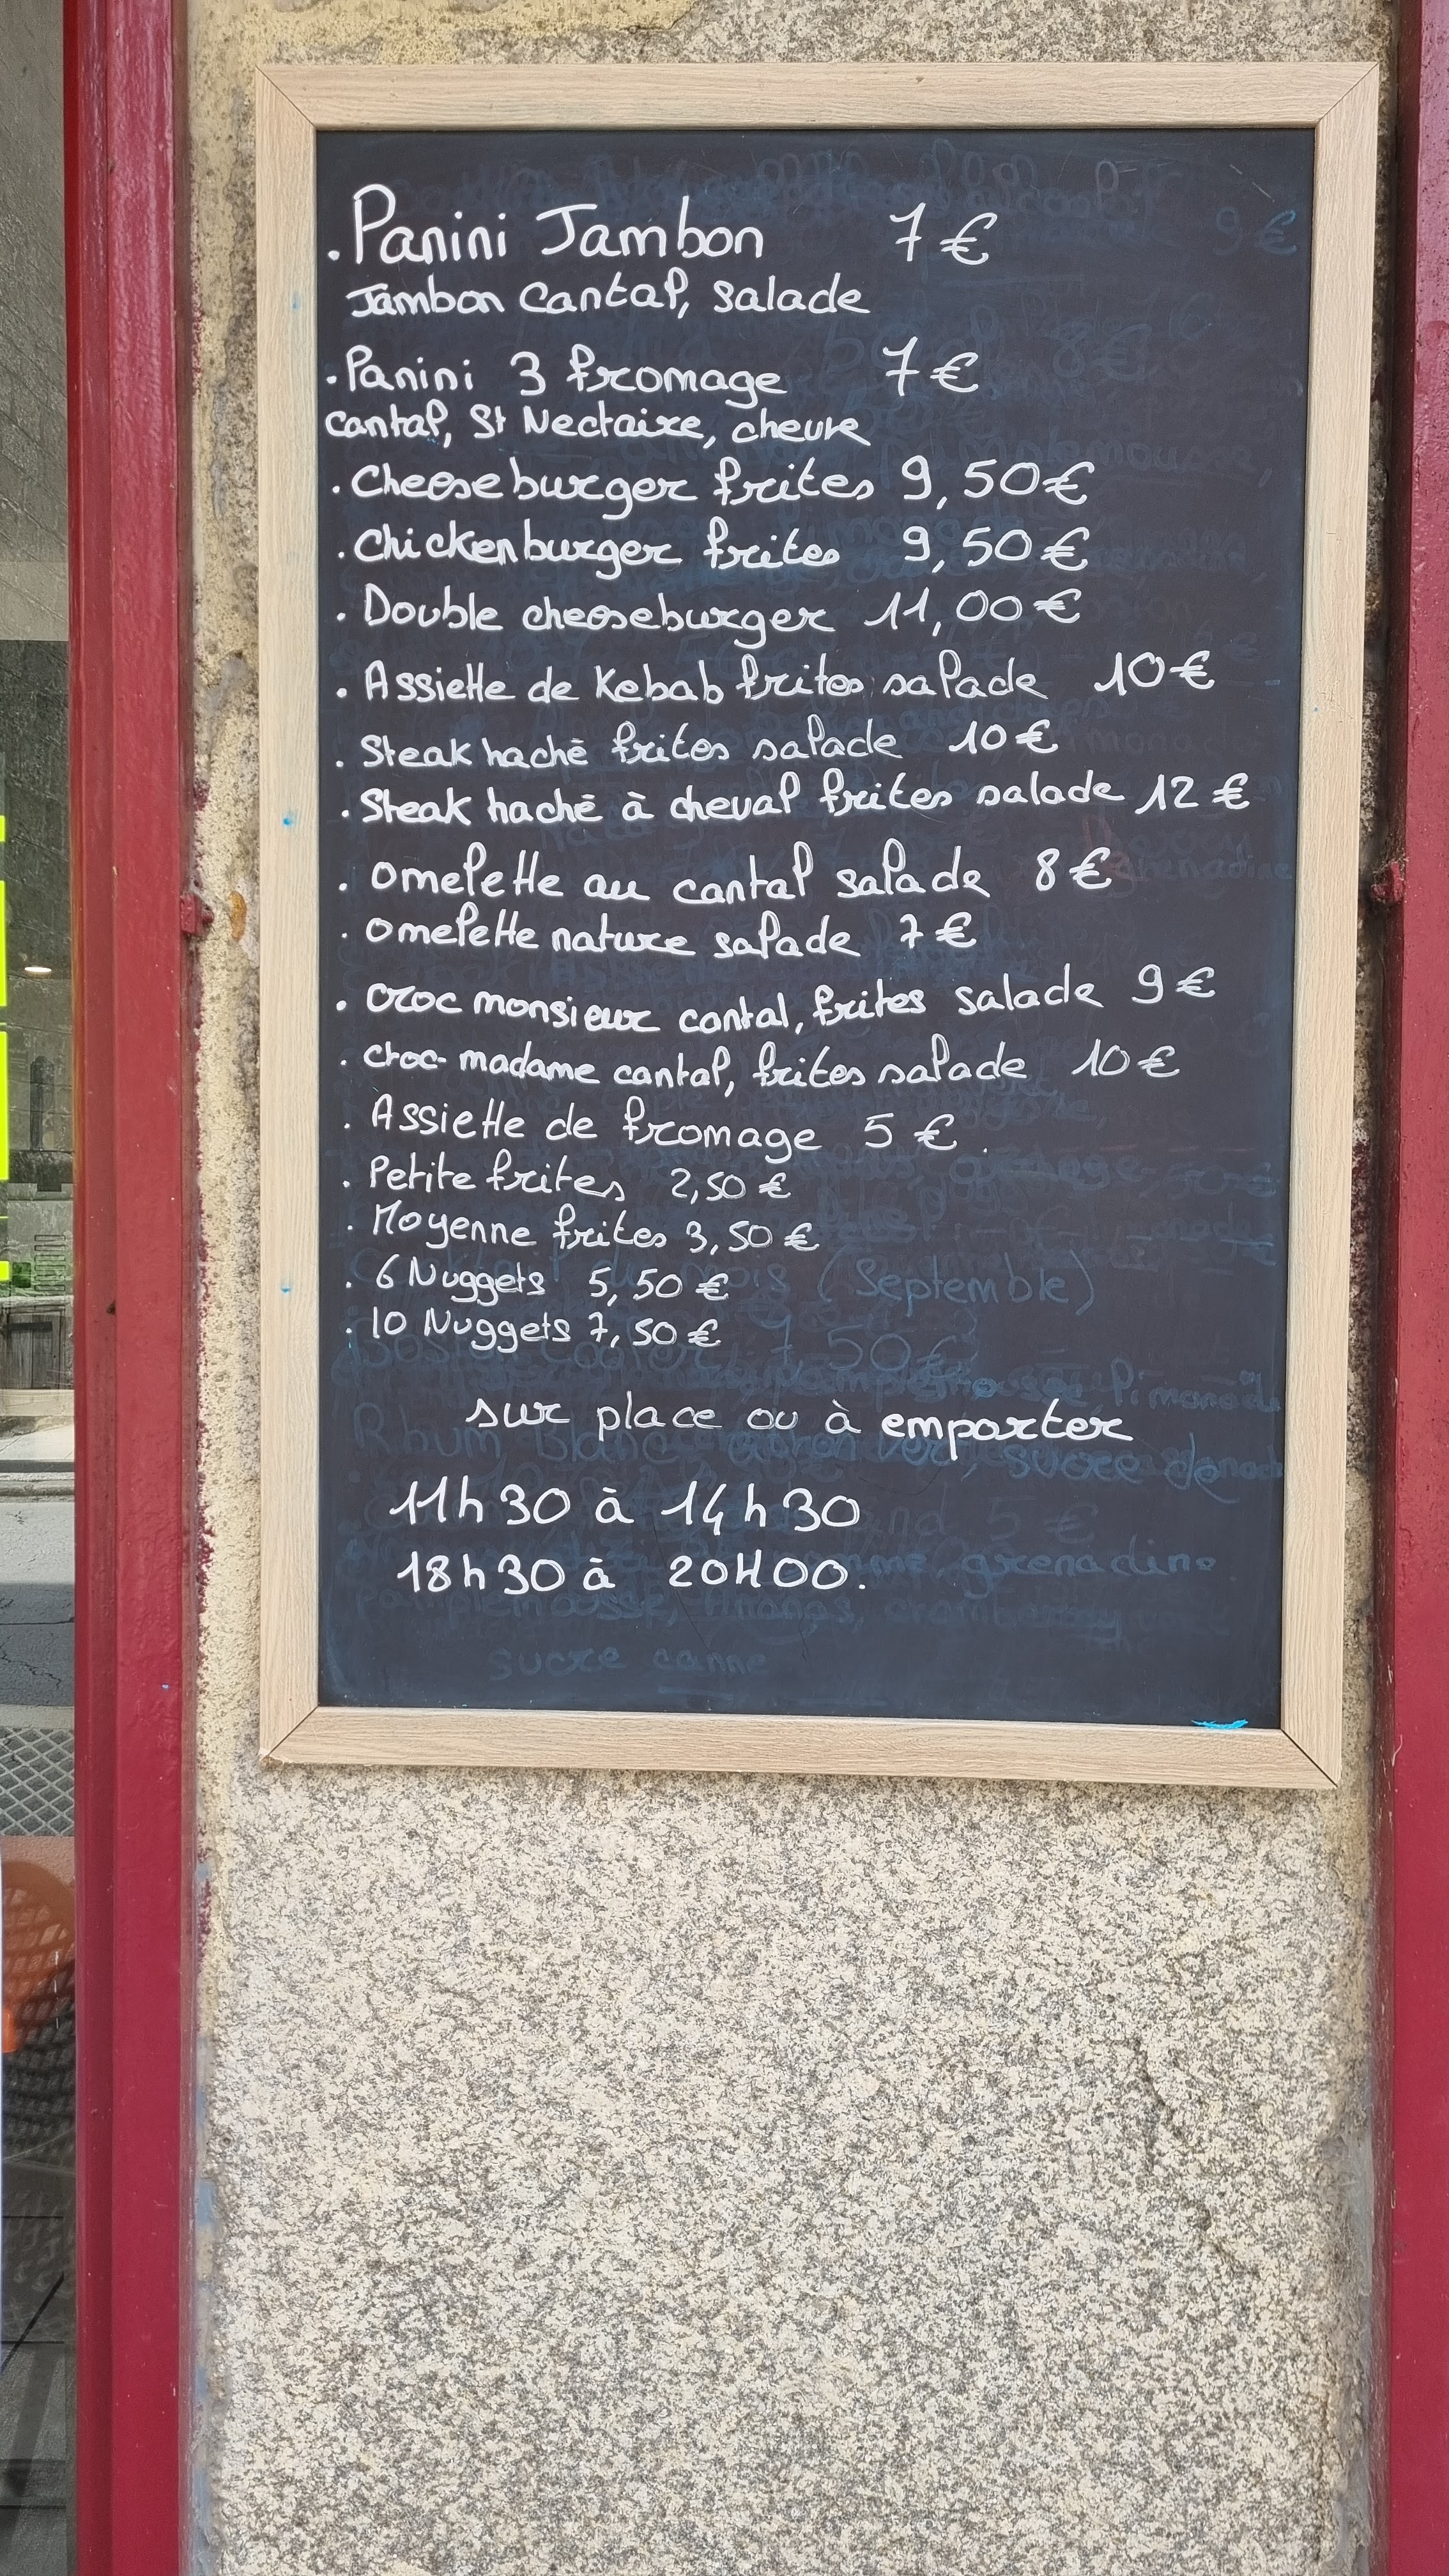 .Panini Jambon 7€
Jambon Cantal, salade
.Panini 3 fromage 7€
Cantal, St Nectaire, chevre
.Cheeseburger frites 9,50€
.Chickenburger frites 9,50€
.Double cheeseburger 11,00€
.Assiette de Kebab frites salade 10€
.Steak haché frites salade 10€
.Steak haché à cheval frites salade 12€
.omelette au cantal salade 8€
.omelette nature salade 7€
.croc monsieur cantal, frites salade 9€
.croc-madame cantal, frites salade 10€
.Assiette de fromage 5€.
.Petite frites 2,50€
.Moyenne frites 3,50€
.6 Nuggets 5,50€
.10 Nuggets 7,50€
(Septemble)
sur place ou à emporter
11h30 à 14h30
18h30 à 20H00.
grenadine
sucre canne